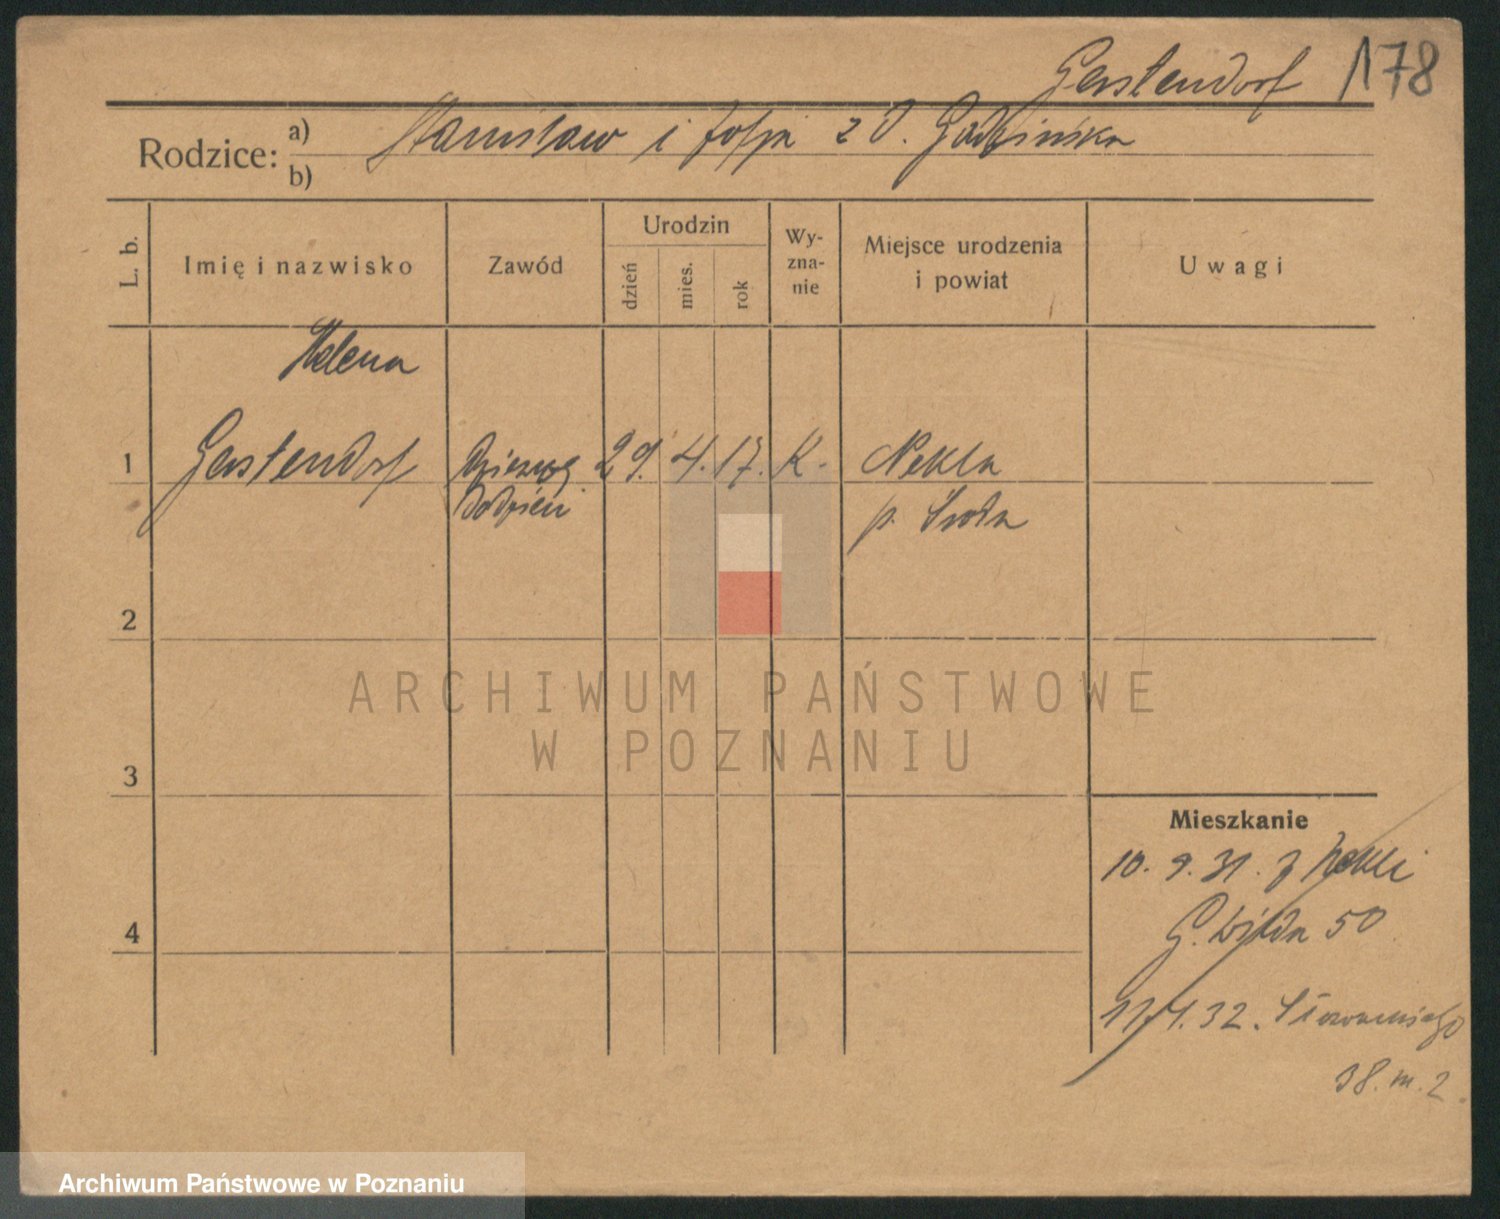 Gerstendorf 178
Rodzice: a) Stanisław i Zofja z d.
b)
L. b.
Imię i nazwisko
Zawód
Urodzin
dzień
mies.
rok
Wy-
zna-
nie
Miejsce urodzenia
i powiat
Uwagi
Helena
1 Gerstendorf 29. 4. 17. K. Nekla
p. Środa
2
3
4
Mieszkanie
10. 9. 31. z Nekli
G. Wilda 50
11.4.32. Słowackiego
38. m. 2.
ARCHIWUM PAŃSTWOWE
W POZNANIU
Archiwum Państwowe w Poznaniu